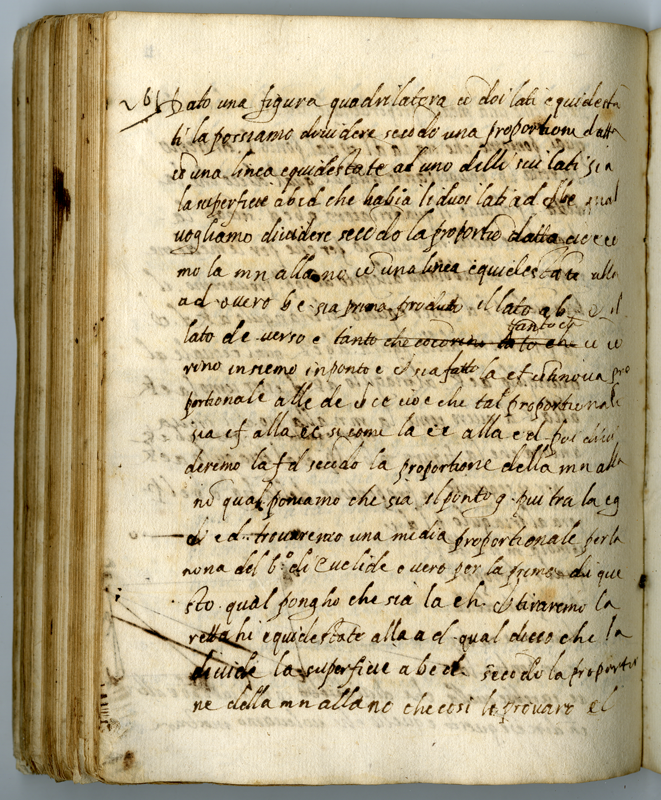 26 Dato una figura quadrilatera cō doi lati equidesta
ti la possiamo dividere secōdo una proportione data
cō una linea equidestāte ad uno delli sui lati sia
la superficie abcd che habia li duoi lati ad et be qual
vogliamo dividere secōdo la proportiō datta cioe co
mo la mn alla no cō una linea equidestāte alla
ad overo be sia prima produto il lato ab et il
lato de verso e tanto che cōcorino lato en tanto che cō co
rino insiemo in ponto e et sia fatto la ef cōtinova pro
portionale alle de et ce cioe che tal proportionali
sia ef alla ec si come la ce alla ed poi divi
deremo la fd secōdo la proportione della mn alla
no qual poniamo che sia il ponto g poi tra la eg
et ed trovaremo una media proportionale per la
nona del 6.º di Euclide overo per la prima di que
sto qual pongho che sia la eh et tiraremo la
retta hi equidestāte alla ad qual dicco che la
divide la superficie abcd secōdo la proportio
ne della mn alla no che cosi lo provaro el